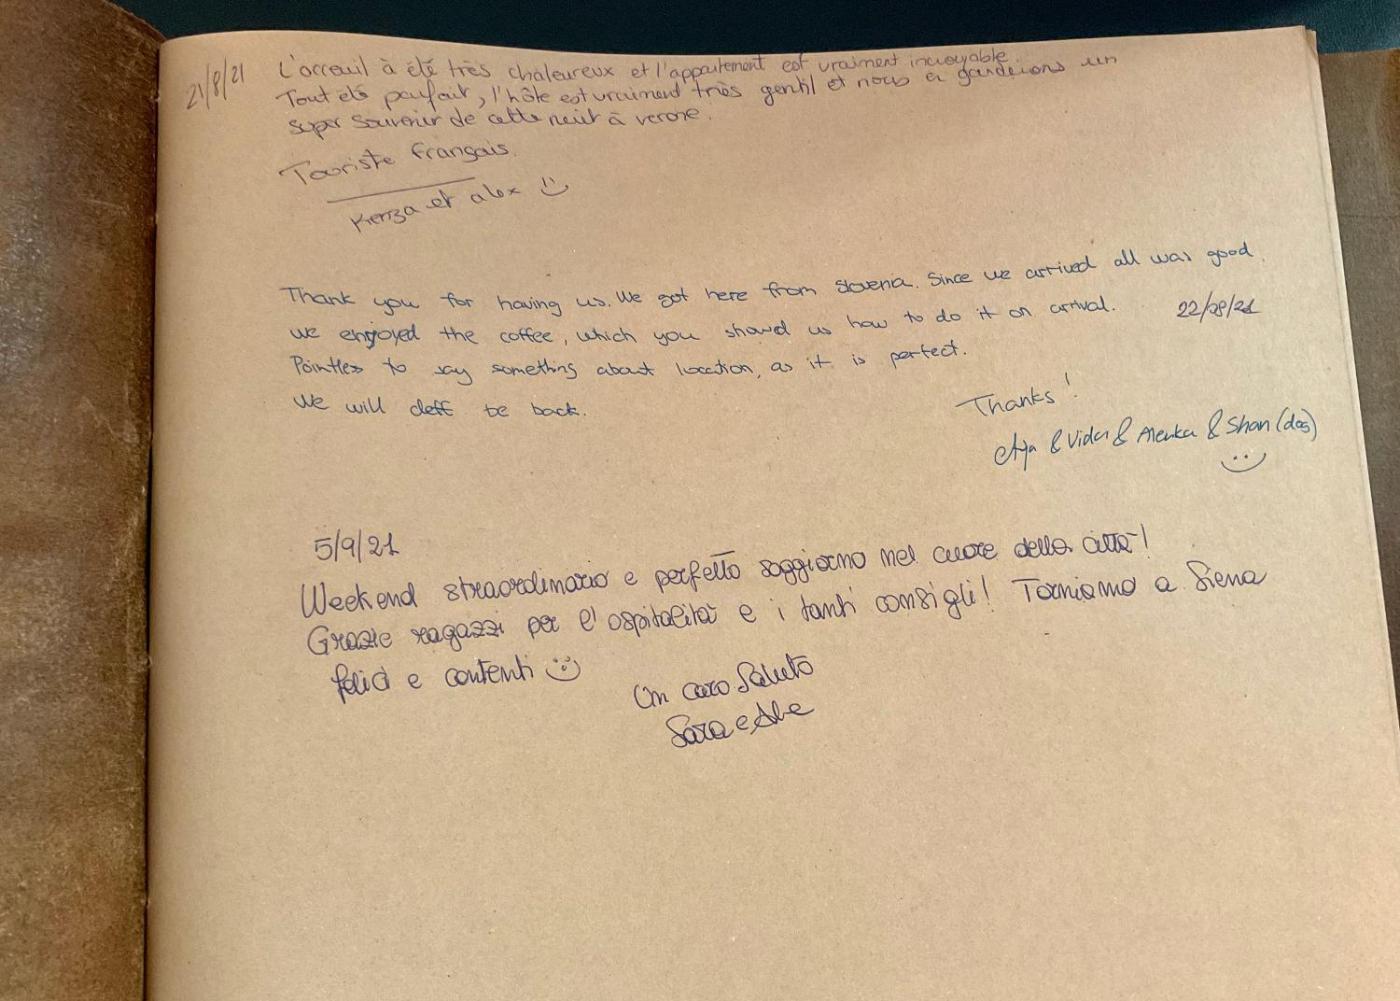 21/8/21
L'acceuil à été très chaleureux et l'appartement est vraiment incroyable.
Tout été parfait, l'hôte est vraiment très gentil et nous en garderons un
super souvenir de cette nuit à verone.
Touriste français.
Kenza et alex
Thank you for having us. We got here from Slovenia. Since we arrived all was good.
We enjoyed the coffee, which you showed us how to do it on arrival.
22/08/21
Pointless to say something about location, as it is perfect.
We will deff be back.
Thanks!
& Vida & Alenka & Shan (dog)
5/9/21
Weekend straordinario e perfetto soggiorno nel cuore della città!
Grazie ragazzi per l'ospitalità e i tanti consigli! Torniamo a Siena
felici e contenti
Un caro saluto
Sara e Ale